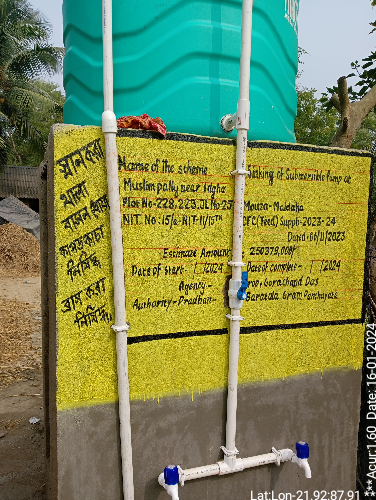 স্নান করা
থালা
বাসন ধোয়া
কাপড় কাচা
নিষিদ্ধ
ব্রাশ করা
নিষিদ্ধ
Name of the scheme Making of Submersible Pump at
Muslim pally near Idgha
Plot No-228,223,JL No.25 Mouza-Maldaha
NIT. No:15/a-NIT-11/15th CFC(Tied) Suppli-2023-24
Dated-06/11/2023
Estimate Amount 250379.00/-
Date of start- 2024 Date of complete- 2024
Agency- Prop: Gorachand Das
Authority-Pradhan- Garazola Gram Panchayat
Lat:Lon-21.92:87.91
**Acur:1.60 Date: 16-01-2024